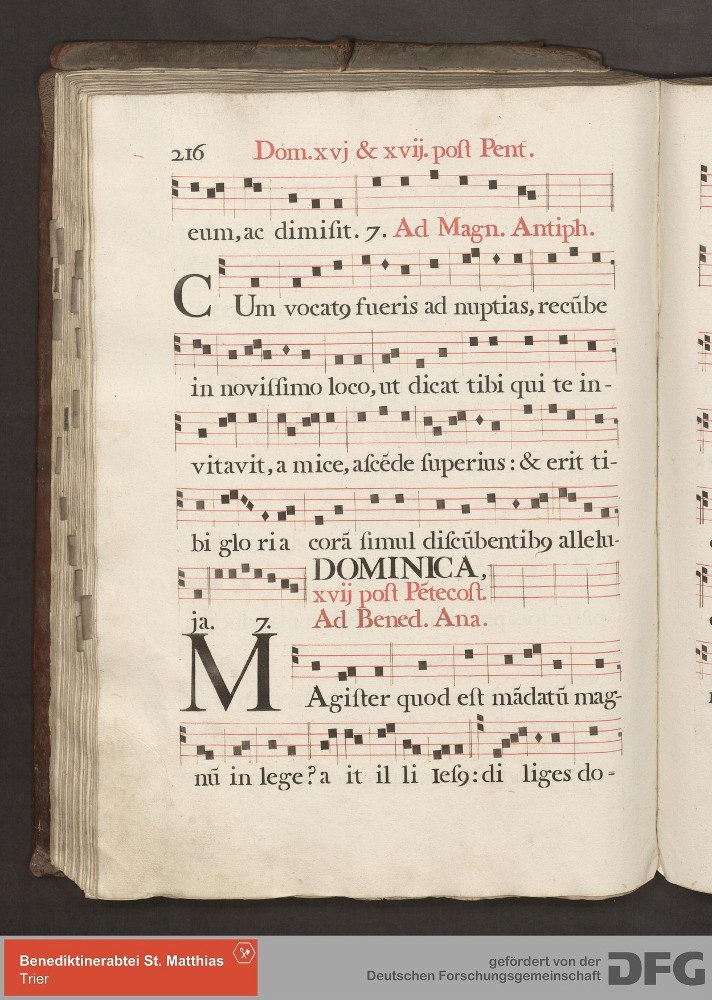 216 Dom. xvj & xvij. poſt Pent.
eum, ac dimiſit. 7. Ad Magn. Antiph.
CUm vocatꝯ fueris ad nuptias, recūbe
in noviſſimo loco, ut dicat tibi qui te in-
vitavit, a mice, aſcēde ſuperius: & erit ti-
bi glo ria corā ſimul diſcūbentibꝯ allelu-
DOMINICA,
xvij poſt Pētecoſt.
ja. 7. Ad Bened. Ana.
MAgiſter quod eſt mādatū mag-
nū in lege? a it il li Ieſꝯ: di liges do-
Benediktinerabtei St. Matthias
Trier
gefördert von der
Deutschen Forschungsgemeinschaft DFG